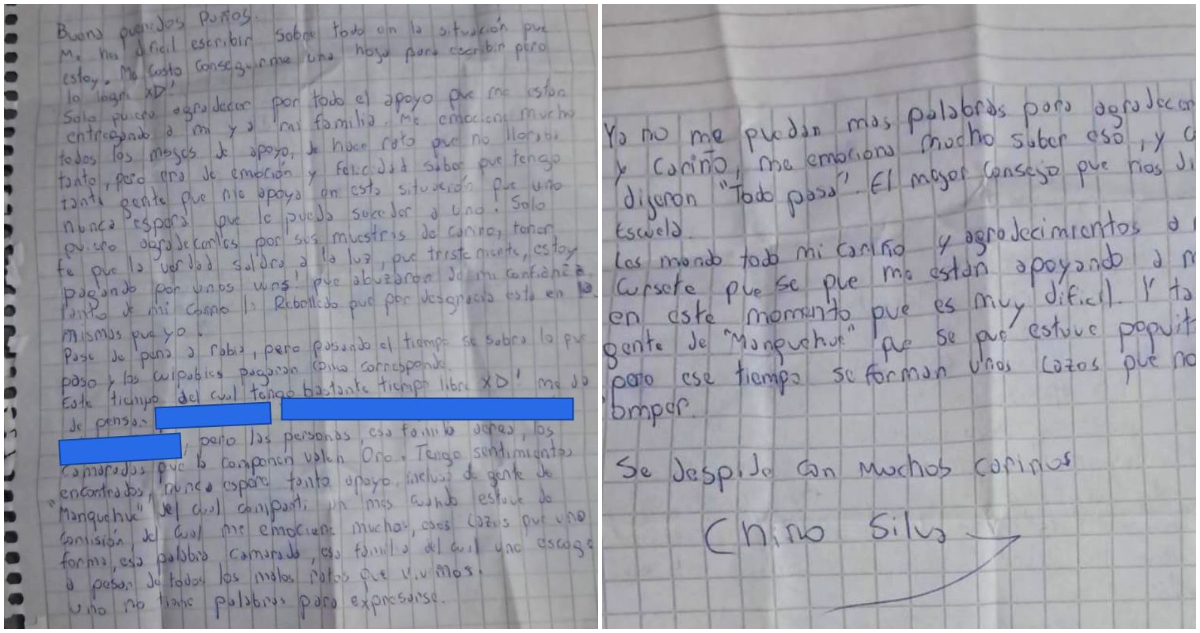 Bueno queridos Puños.
Me ha dificil escribir sobre todo en la situación que
estoy. Me costo conseguirme una hoja para escribir pero
lo logre XD!
Solo quiero agradecer por todo el apoyo que me estan
entregando a mi y a mi familia. Me emocione mucho
todos los msges de apoyo, de hace rato que no lloraba
tanto, pero era de emoción y felicidad saber que tengo
tanta gente que me apoya en esta situación que uno
nunca espera que le pueda suceder a uno! Solo
quiero agradecerles por sus muestras de cariño, tener
fe que la verdad saldra a la luz, que tristemente, estoy
pagando por unos wns! que abuzaron de mi confianza
tanto de mi como la Rebolledo que por desgracia esta en la
mismas que yo.
Pase de pena a rabia, pero pasando el tiempo se sabra lo que
paso y los culpables pagaran como corresponde.
Este tiempo del cual tengo bastante tiempo libre XD! me da
de pensar
, pero las personas, esa familia los
camaradas que la componen valen Oro. Tengo sentimientos
encontrados, nunca espere tanto apoyo, incluso de gente de
"Manquehue" del cual comparti un mes cuando estuve de
comisión del cual me emocione muchos, esos lazos que uno
forma, esa palabra camarada, esa familia del cual uno escoge
a pesar de todos los malos ratos que vivimos.
Uno no tiene palabras para expresarse.
Ya no me quedan mas palabras para agradecer
y cariño, me emociona mucho saber eso, y
dijeron "Todo pasa". El mejor consejo que nos
Escuela.
Les mando todo mi cariño y agradecimientos a
Cursete que se que me estan apoyando a
en este momento que es muy dificil. Y
gente de "Manquehue" que se que estuve poquit
pero ese tiempo se forman unos lazos que no
omper.
Se despide con muchos cariños
Chino Silva